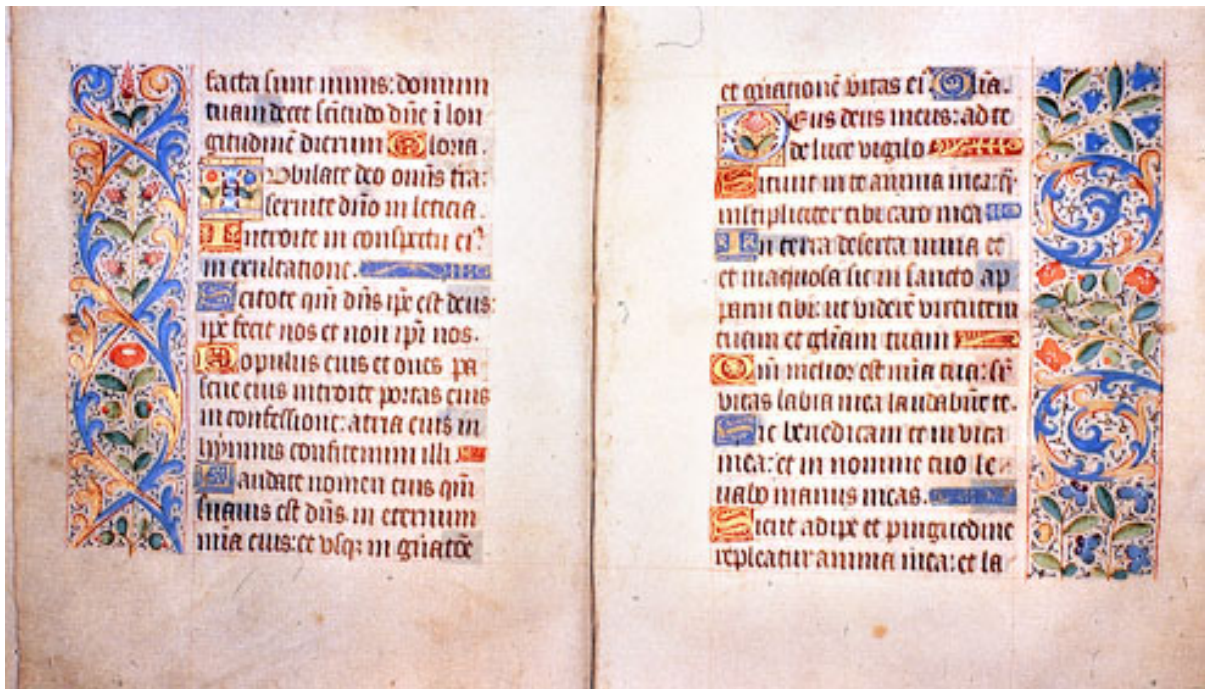 facta sunt nimis: domum
tuam decet scitudo dñe i lon
gitudinē dierum Gloria.
Iubilate deo omīs tra:
seruite dño in leticia.
Introite in conspectu ei9
in exultatione.
Scitote qm̄ dñs ipē est deus:
ipē fecit nos et non ipī nos.
Populus eius et oues pa
scue eius introite portas eius
in confessione: atria eius in
hymnis confitemini illi
Laudate nomen eius qm̄
suauis est dñs in eternum
mīa eius: et vsq; in gn̄atōē
et gn̄ationē vitas ei Gl̄ia.
Deus deus meus: ad te
de luce vigilo
Sitiuit in te anima mea: q̄
multipliciter tibi caro mea
In terra deserta inuia et
et inaquosa sic in sancto ap
parui tibi: ut viderē virtutem
tuam et gl̄iam tuam
Qm̄ melior est mīa tua: sr̄
vitas labia mea laudabūt te.
Sic benedicam te in vita
mea: et in nomine tuo le
uabo manus meas.
Sicut adipe et pinguedine
repleatur anima mea: et la